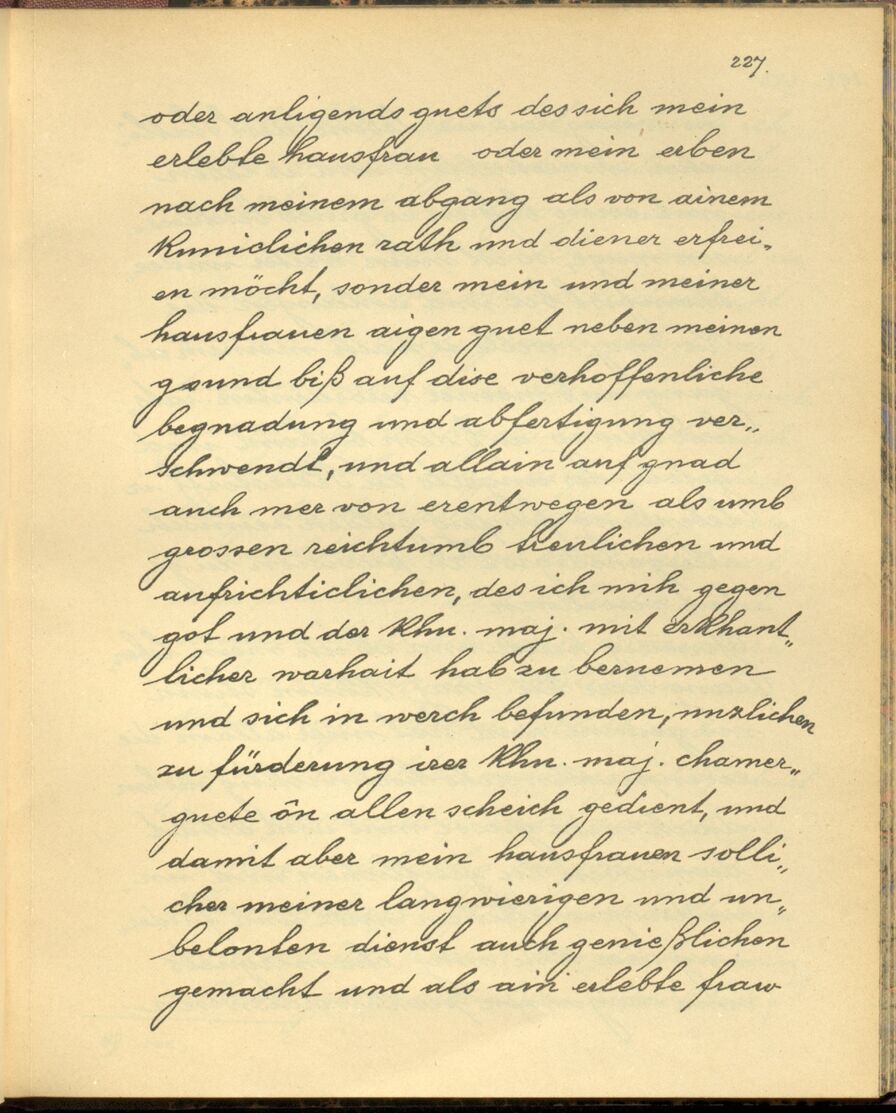 227.
oder anligends guets des sich mein
erlebte hausfrau oder mein erben
nach meinem abgang als von ainem
kuniclichen rath und diener erfrei„
en möcht, sonder mein und meiner
hausfrauen aigen guet neben meinen
gsund biß auf dise verhoffenliche
begnadung und abfertigung ver„
schwendt, und allain auf gnad
auch mer von erentwegen als umb
grossen reichtumb treulichen und
aufrichticlichen, des ich mih gegen
got und der khu. maj. mit erkhant„
licher warhait hab zu beruemen
und sich in werch befunden, nuzlichen
zu fürderung irer khu. maj. chamer„
guete ön allen scheich gedient, und
damit aber mein hausfrauen solli„
cher meiner langwierigen und un„
belonten dienst auch genießlichen
gemacht und als ain erlebte fraw